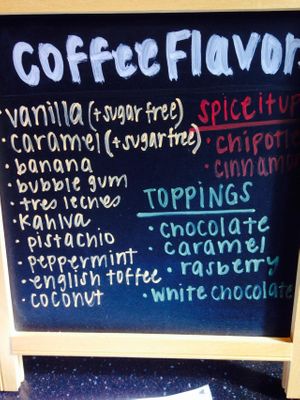 Coffee Flavor
· vanilla (+sugar free)
· caramel (+sugar free)
· banana
· bubble gum
· tres leches
· Kahlva
· pistachio
· peppermint
· english toffee
· coconut
SPICE it UP
· chipotl
· cinnamo
TOPPINGS
· chocolate
· caramel
· rasberry
· white chocolate